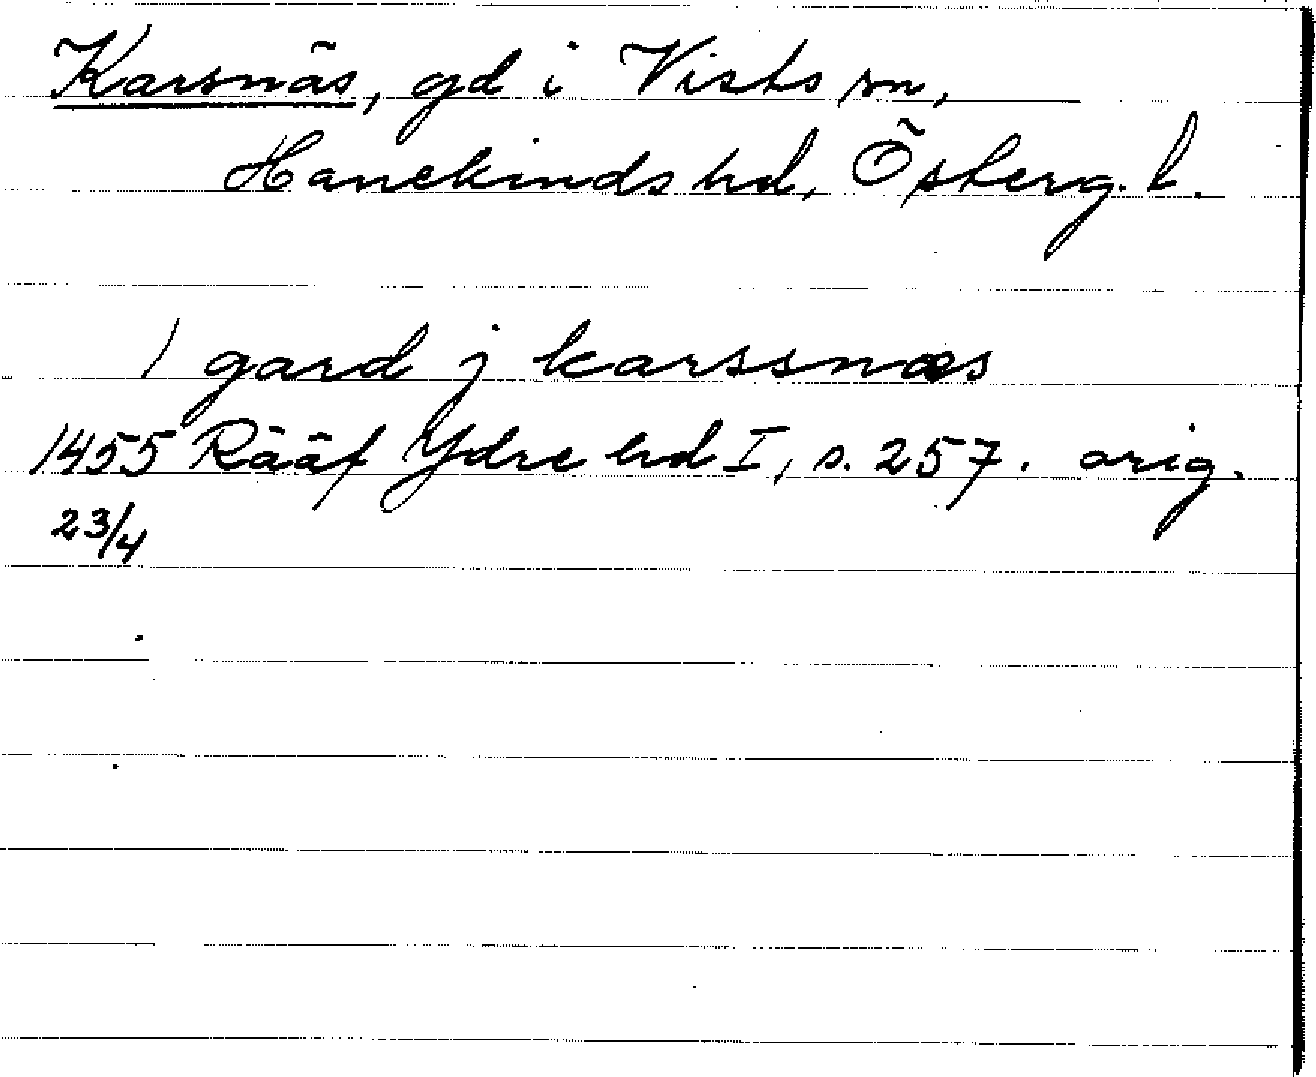 Karsnäs, gd i Vists sn,
Hanekinds hd, Österg. l.
1 gard j karssnæs
1455 Rääf Ydre hd I, s. 257. orig.
23/4